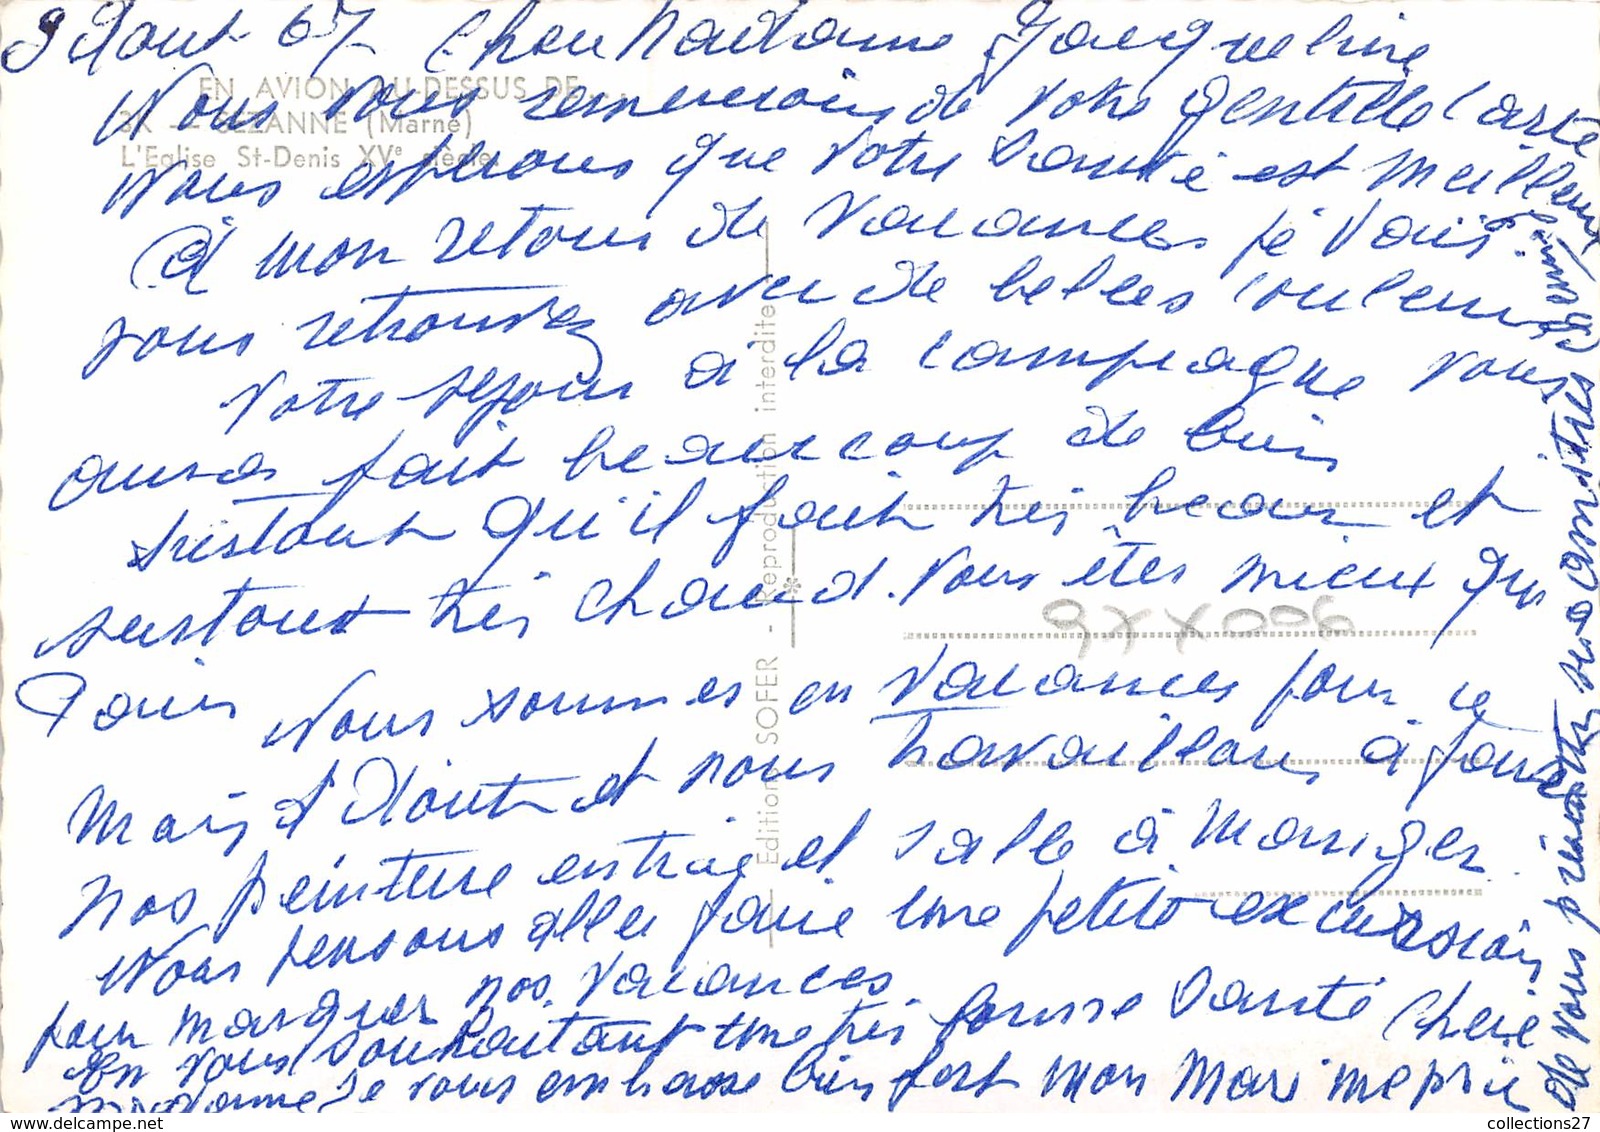 9 Aout 67 Chere Madame Jacqueline
EN AVION AU-DESSUS DE...
Nous vous remercions de votre gentille Carte
3K — SEZANNE (Marne)
L'Eglise St-Denis XVe siècle
Nous espérons que votre Santé est meilleur
à mon retour de vacances je vais
vous retrouvez avec de belles couleurs
Votre séjour à la campagne vous
auras fait beaucoup de bien
surtout qu'il fait très beau et
surtout très chaud. Vous êtes mieux qu
Paris Nous sommes en vacances pour ce
mois d'Aout et nous travaillons à faire
nos peinture entrée et salle à manger.
Nous pensons aller faire une petite excursion
pour marquer nos vacances.
En vous souhaitant une très bonne Santé Chère
Madame, Je vous embrasse bien fort mon mari me prie
de vous présenter ses amitiés
Editions SOFER - Reproduction interdite
9XXX006
collections27